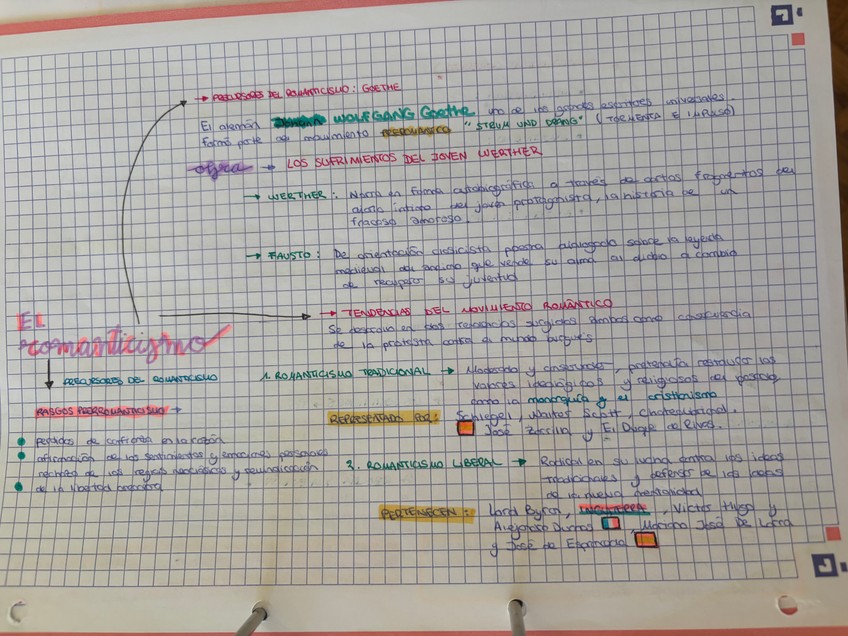 → PRECURSORES DEL ROMANTICISMO: GOETHE
El alemán WOLFGANG Goethe uno de los grandes escritores universales.
formó parte del movimiento PRERROMÁNTICO "STRUM UND DRANG" (TORMENTA E IMPULSO)
obra → LOS SUFRIMIENTOS DEL JOVEN WERTHER
→ WERTHER: Narra en forma autobiográfica a través de cartas fragmentos del
diario íntimo del joven protagonista, la historia de un
fracaso amoroso.
→ FAUSTO: De orientación clasicista poema dialogado sobre la leyenda
medieval del anciano que vende su alma al diablo a cambio
de recuperar su juventud
→ TENDENCIAS DEL MOVIMIENTO ROMÁNTICO
Se destacan en dos surgidas ambas como consecuencia
de la protesta contra el mundo burgués
EL
romanticismo
PRECURSORES DEL ROMANTICISMO
RASGOS PRERROMANTICISMO →
perdidas de confianza en la razón
afirmación de los sentimientos y emociones personales
rechazo de las reglas neoclásicas y reivindicación
de la libertad creadora
1. ROMANTICISMO TRADICIONAL → Moderado y conservador, pretendía restaurar los
valores ideológicos y religiosos del pasado,
como la monarquía y el cristianismo
REPRESENTADO POR: Schlegel, Walter Scott, Chateaubriand.
José Zorrilla y El Duque de Rivas.
3. ROMANTICISMO LIBERAL → Radical en su lucha contra las ideas
tradicionales y defensor de los
de la nueva mentalidad
PERTENECEN: Lord Byron, INGLATERRA, Victor Hugo y
Alejandro Dumas, Mariano José De Larra
y José de Espronceda